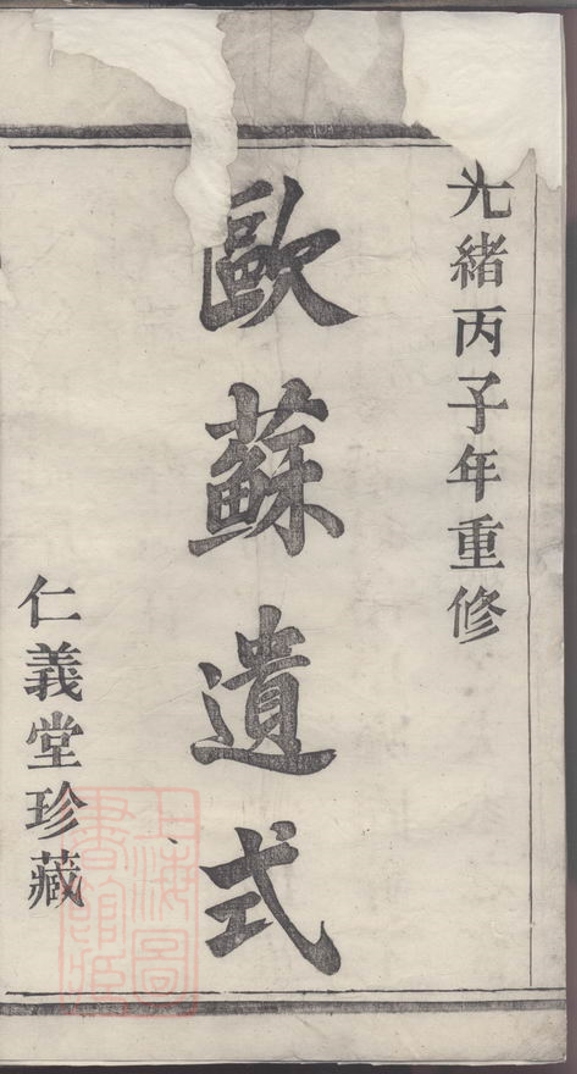 光緒丙子年重修
歐蘇遺式
仁義堂珍藏
上海圖
書館藏